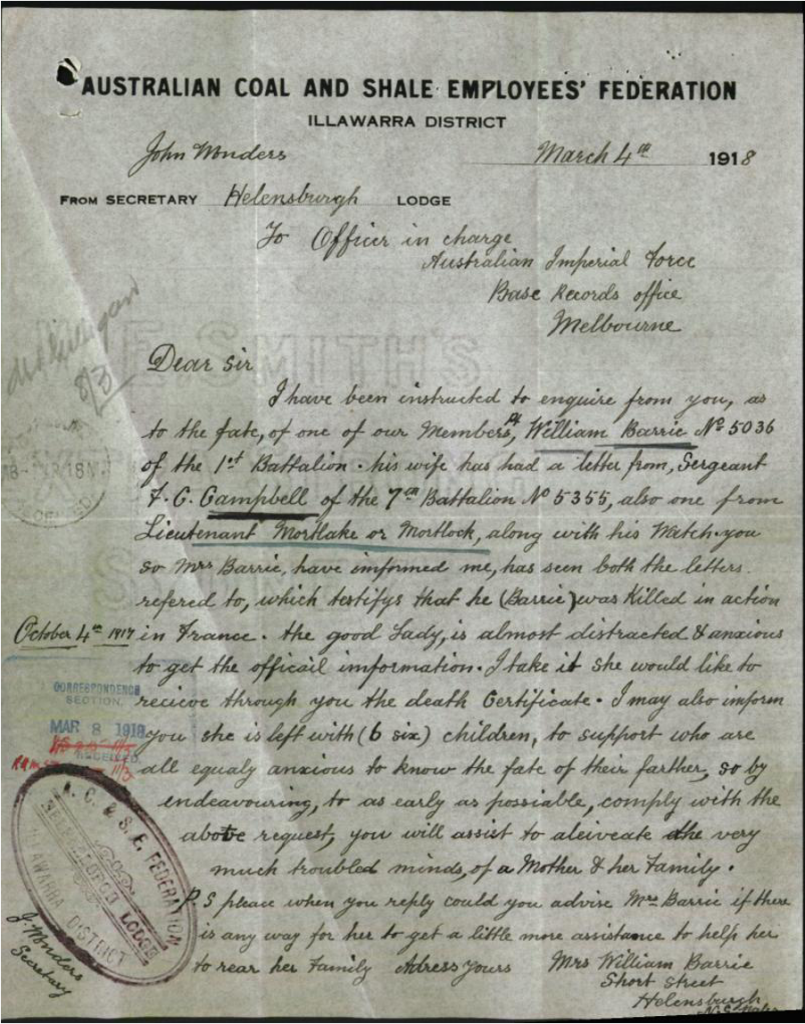 AUSTRALIAN COAL AND SHALE EMPLOYEES' FEDERATION
ILLAWARRA DISTRICT
John Wonders March 4th 1918
FROM SECRETARY Helensburgh LODGE
To Officer in charge
Australian Imperial Force
Base Records office
Melbourne
Dear Sir
I have been instructed to enquire from you, as
to the fate, of one of our Members, Pt William Barrie No 5036
of the 1st Battalion. his wife has had a letter from, Sergeant
F. C. Campbell of the 7th Battalion No 5355, also one from
Lieutenant Mortlake or Mortlock, along with his Watch. you
so Mrs Barrie, have imformed me, has seen both the letters
refered to, which testifys that he (Barrie) was Killed in action
October 4th 1917 in France. the good Lady, is almost distracted & anxious
to get the officail imformation. I take it she would like to
recieve through you the death Certificate. I may also imform
you she is left with (6 six) children, to support who are
all equaly anxious to know the fate of their farther, so by
endeavouring, to as early as possiable, comply with the
above request, you will assist to aleiveate the very
much troubled minds, of a Mother & her Family.
P.S please when you reply could you advise Mrs Barrie if there
is any way for her to get a little more assistance to help her
to rear her Family Adress Yours Mrs William Barrie
Short Street
Helensburgh
N.S. Wales
CORRESPONDENCE
SECTION
MAR 8 1918
RECEIVED
A. C. & S. E. FEDERATION
HELENSBURGH LODGE
ILLAWARRA DISTRICT
J. Wonders
Secretary
8/3
E SMITH'S